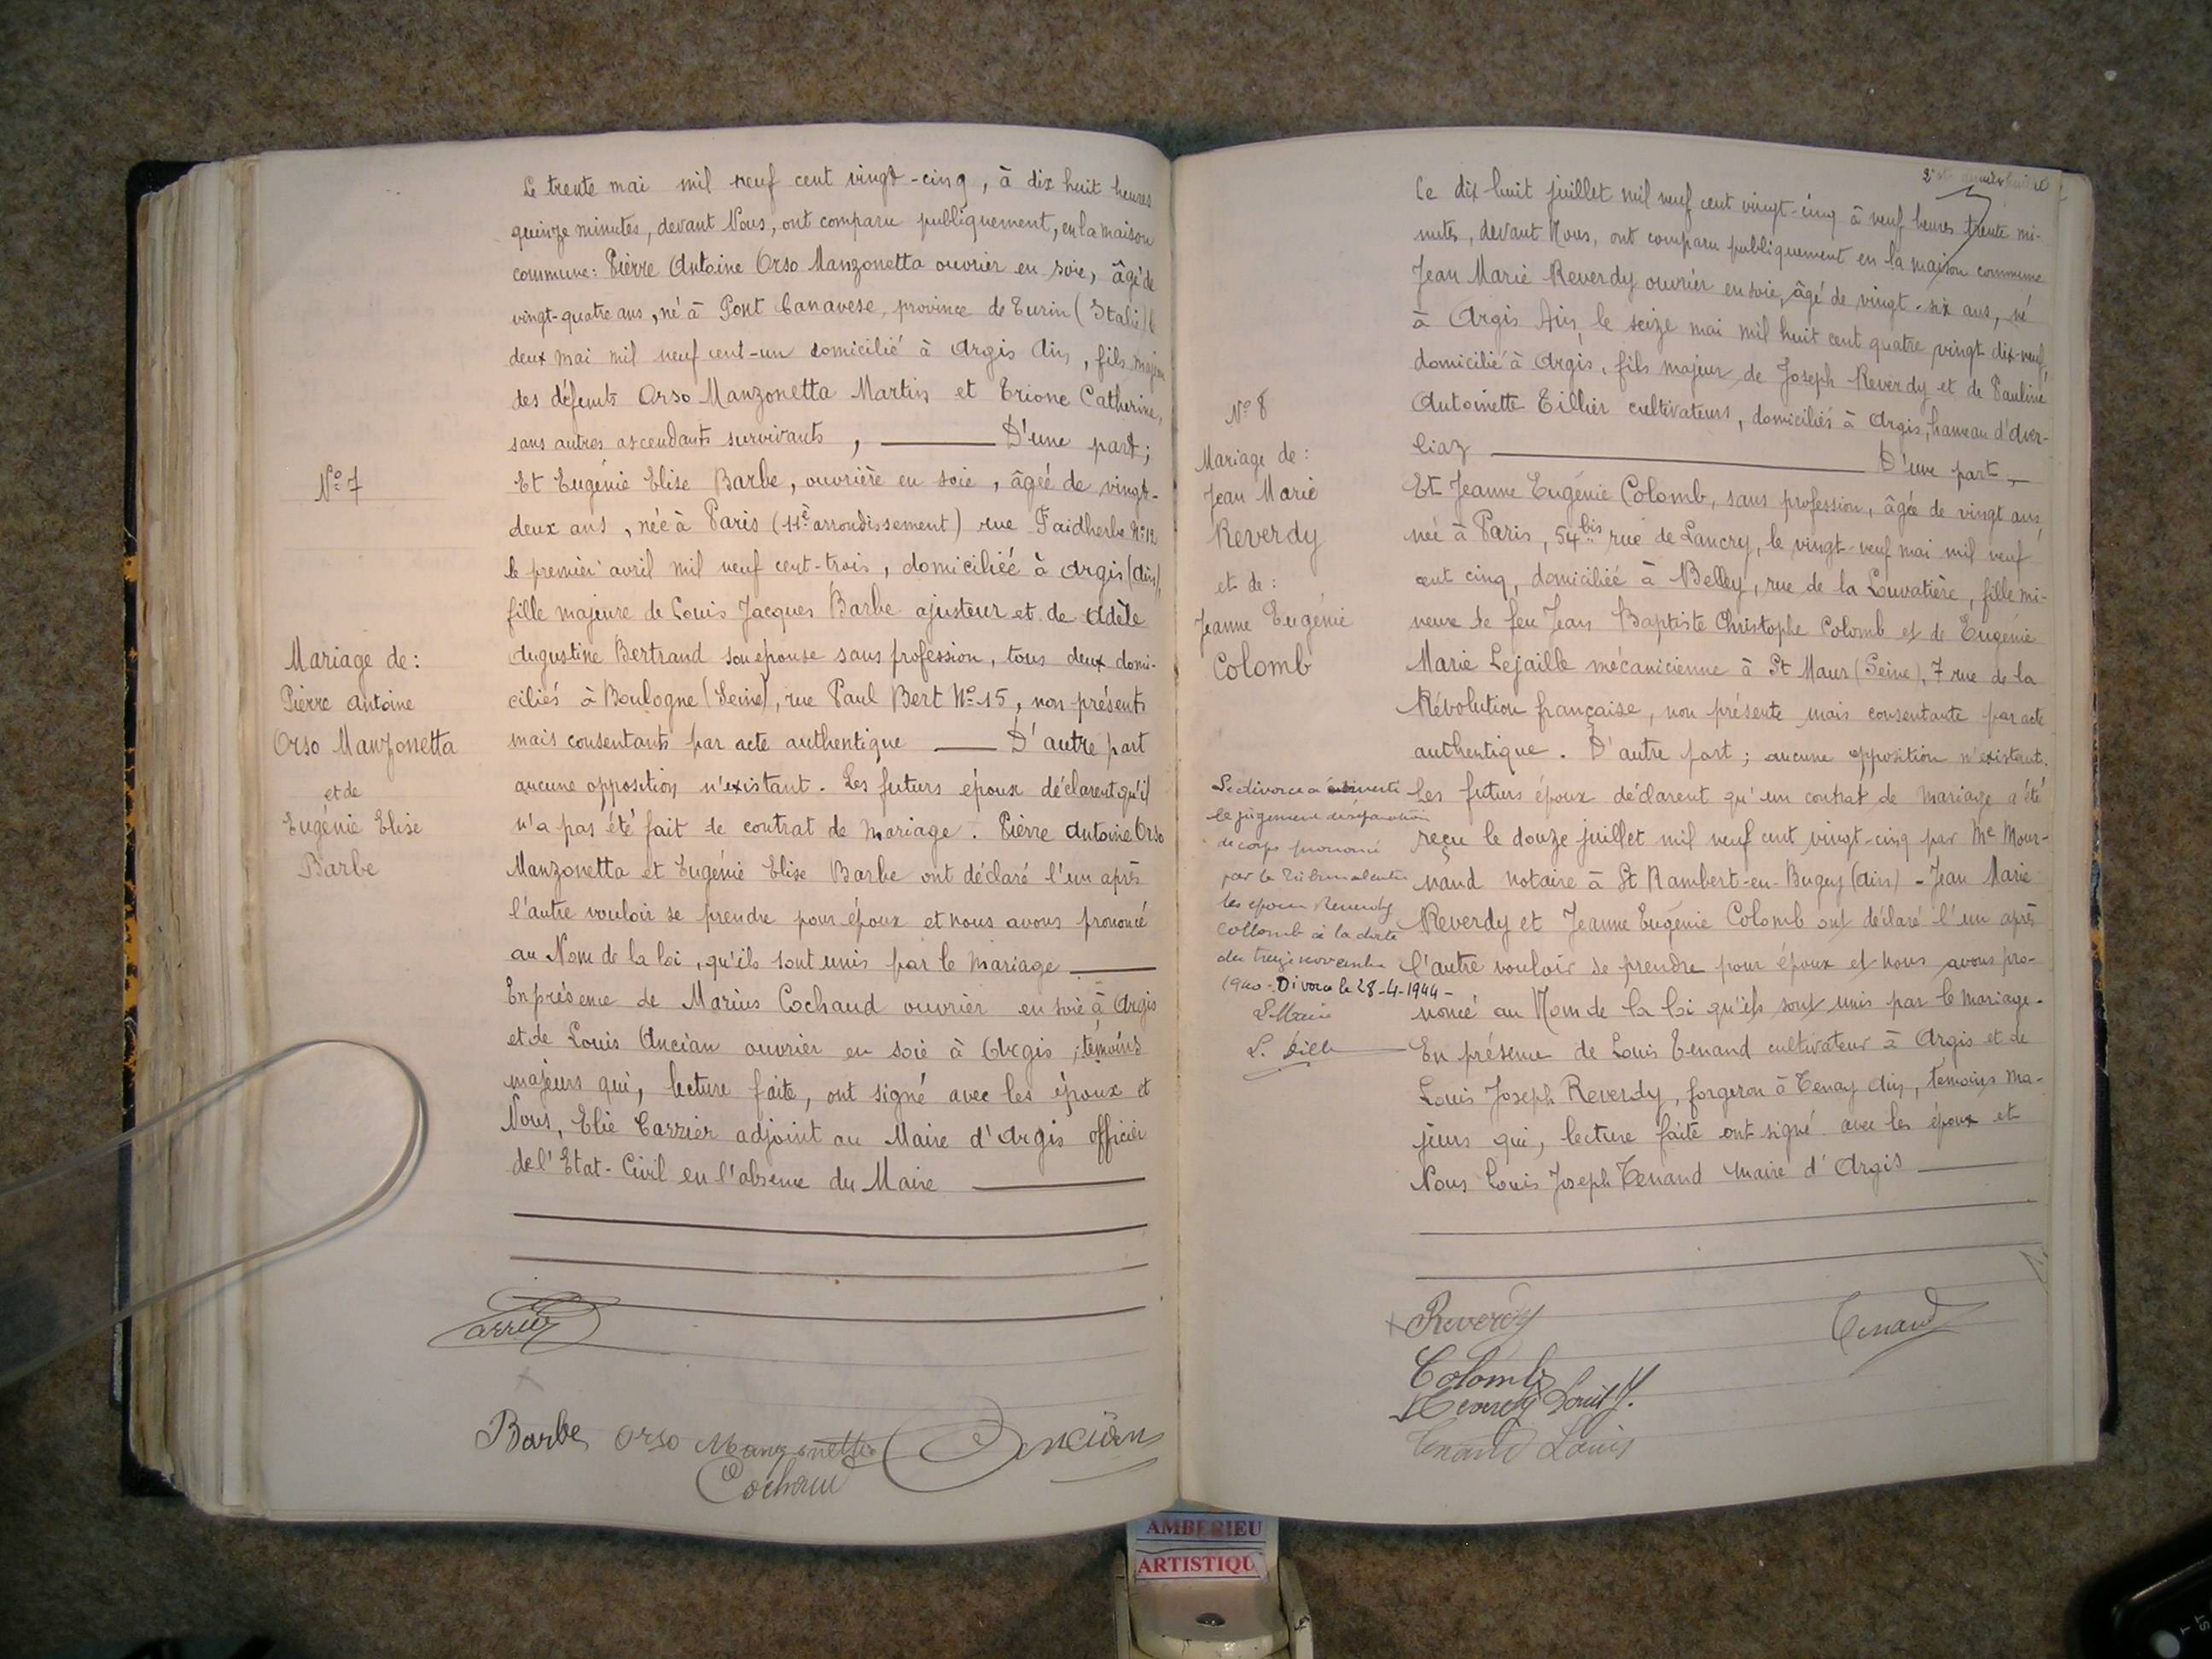 Le trente mai mil neuf cent vingt-cinq, à dix huit heures
quinze minutes, devant Nous, ont comparu publiquement, en la maison
commune: Pierre Antoine Orso Manzonetta ouvrier en soie, âgé de
vingt-quatre ans, né à Pont Canavese, province de Turin (Italie) l
deux mai mil neuf cent-un domicilié à Argis Ain, fils majeu
des défunts Orso Manzonetta Martin et Trione Catherine,
sans autres ascendants survivants, D'une part;
Et Eugénie Elise Barbe, ouvrière en soie, âgée de vingt-
deux ans, née à Paris (11è arrondissement) rue Faidherbe No 12
le premier avril mil neuf cent-trois, domiciliée à Argis (Ain),
fille majeure de Louis Jacques Barbe ajusteur et de Adèle
Augustine Bertrand son épouse sans profession, tous deux domi-
ciliés à Boulogne (Seine), rue Paul Bert No 15, non présents
mais consentants par acte authentique D'autre part
aucune opposition n'existant. Les futurs époux déclarent qu'il
n'a pas été fait de contrat de mariage. Pierre Antoine Orso
Manzonetta et Eugénie Elise Barbe ont déclaré l'un après
l'autre vouloir se prendre pour époux et nous avons prononcé
au Nom de la loi, qu'ils sont unis par le mariage
En présence de Marius Cochaud ouvrier en soie à Argis
et de Louis Ancian ouvrier en soie à Argis; témoins
majeurs qui, lecture faite, ont signé avec les époux et
Nous, Elie Carrier adjoint au Maire d'Argis officier
de l'Etat-Civil en l'absence du Maire
No 7
Mariage de:
Pierre Antoine
Orso Manzonetta
et de
Eugénie Elise
Barbe
Carrier
Barbe Orso Manzonetta Ancian
Cochaud
Ce dix-huit juillet mil neuf cent vingt-cinq à neuf heures trente mi-
nutes, devant Nous, ont comparu publiquement en la maison commune
Jean Marie Reverdy ouvrier en soie, âgé de vingt-six ans, né
à Argis Ain, le seize mai mil huit cent quatre vingt dix-neuf,
domicilié à Argis, fils majeur de Joseph Reverdy et de Pauline
Antoinette Tillier cultivateurs, domiciliés à Argis, hameau d'Aver-
liaz D'une part
Et Jeanne Eugénie Colomb, sans profession, âgée de vingt ans,
née à Paris, 54 bis rue de Lancry, le vingt-neuf mai mil neuf
cent cinq, domiciliée à Belley, rue de la Louvatière, fille mi-
neure de feu Jean Baptiste Christophe Colomb et de Eugénie
Marie Lejaille mécanicienne à St Maur (Seine), 7 rue de la
Révolution française, non présente mais consentante par acte
authentique. D'autre part; aucune opposition n'existant.
Les futurs époux déclarent qu'un contrat de mariage a été
reçu le douze juillet mil neuf cent vingt-cinq par Me Mour-
nand notaire à St Rambert-en-Bugey (Ain) - Jean Marie
Reverdy et Jeanne Eugénie Colomb ont déclaré l'un après
l'autre vouloir se prendre pour époux et nous avons pro-
noncé au Nom de la loi qu'ils sont unis par le mariage.
En présence de Louis Tenand cultivateur à Argis et de
Louis Joseph Reverdy, forgeron à Tenay Ain, témoins ma-
jeurs qui, lecture faite ont signé avec les époux et
Nous Louis Joseph Tenand Maire d'Argis
No 8
Mariage de:
Jean Marie
Reverdy
et de:
Jeanne Eugénie
Colomb
Le divorce a converti
le jugement de séparation
de corps prononcé
par le Tribunal entre
les époux Reverdy
Collomb à la date
du treize novembre
1940 - Divorce le 28-4-1944 -
Le Maire
Reverdy Tenand
Colomb
Reverdy Louis J.
Tenand Louis
AMBERIEU
ARTISTIQU